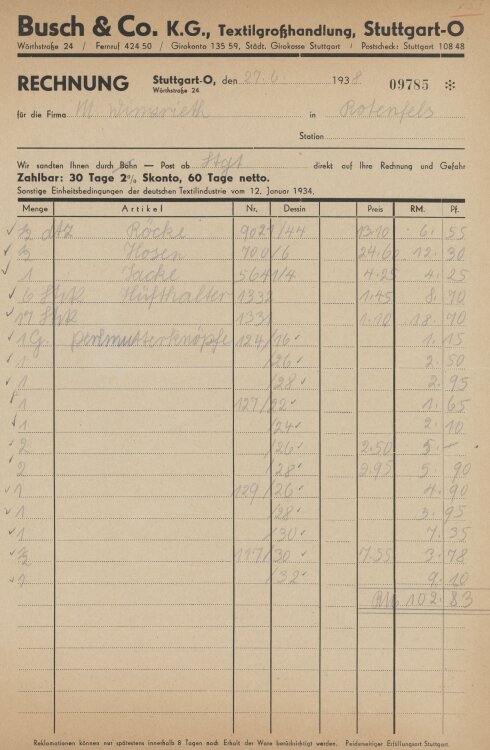 Busch & Co. K.G., Textilgroßhandlung, Stuttgart-O
Wörthstraße 24 / Fernruf 424 50 / Girokonto 135 59, Städt. Girokasse Stuttgart / Postscheck: Stuttgart 108 48
RECHNUNG Stuttgart-O, den 27.6. 1938 09785 *
Wörthstraße 24
für die Firma M in Rotenfels
Station
Wir sandten Ihnen durch Bahn — Post ab Stgt direkt auf Ihre Rechnung und Gefahr
Zahlbar: 30 Tage 2% Skonto, 60 Tage netto.
Sonstige Einheitsbedingungen der deutschen Textilindustrie vom 12. Januar 1934.
Menge Artikel Nr. Dessin Preis RM. Pf.
½ dtz Röcke 9021/44 13.10 6. 55
½ Hosen 700/6 24.60 12. 30
1 Jacke 5641/4 4.25 4. 25
6 Stck Hüfthalter 1332 1.45 8. 70
17 Stck 133 1.10 18. 70
1 G. Perlmutterknöpfe 124/16 1. 15
1 /26 2. 50
1 /28 2. 95
1 127/22 1. 65
1 /24 2. 10
2 /26 2.50 5. —
2 /28 2.95 5. 90
1 129/26 4. 90
1 /28 3. 95
1 /30 7. 35
½ 117/30 7.55 3. 78
1 /32 9. 10
RM. 102. 83
Reklamationen können nur spätestens innerhalb 8 Tagen nach Erhalt der Ware berücksichtigt werden. Beiderseitiger Erfüllungsort Stuttgart.